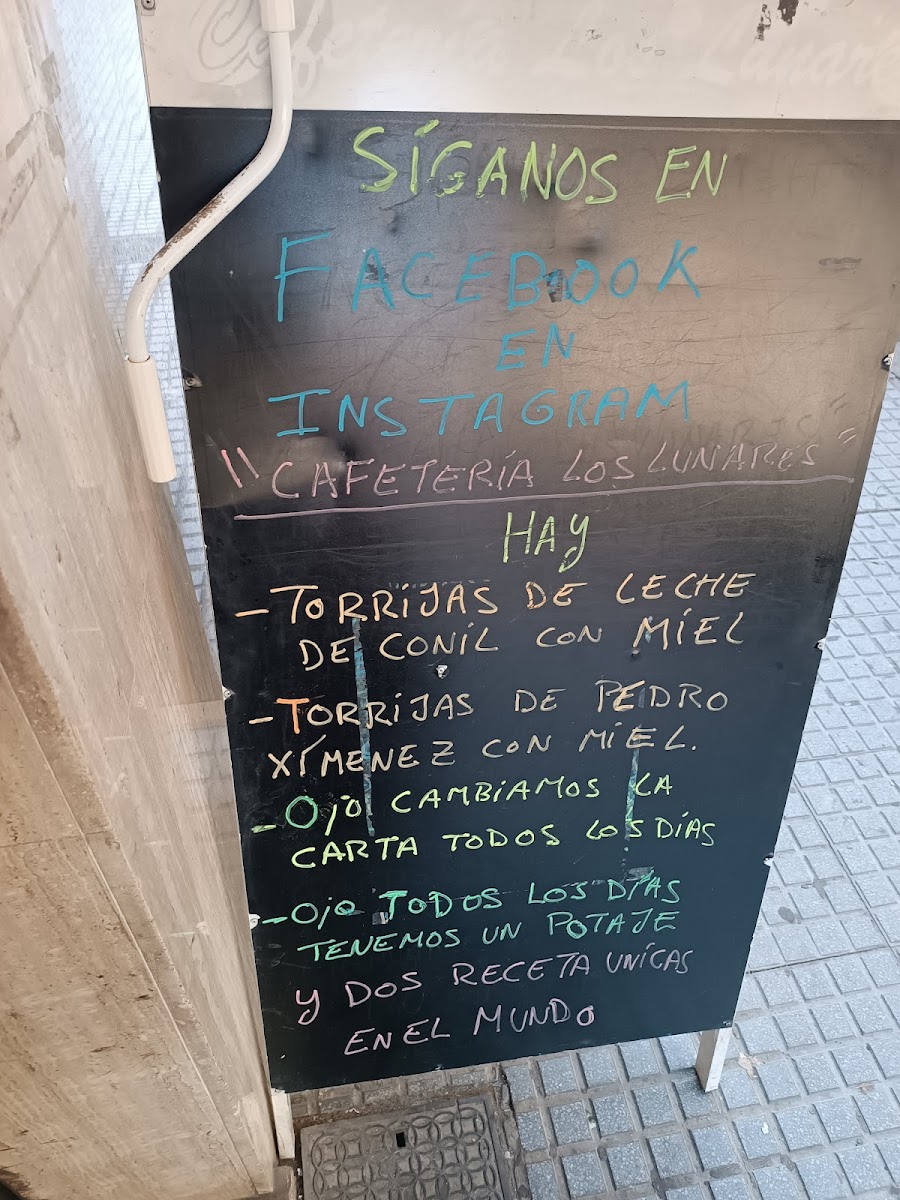 Cafetería Los Lunares
SÍGANOS EN
FACEBOOK
EN
INSTAGRAM
"CAFETERÍA LOS LUNARES"
HAY
- TORRIJAS DE LECHE
DE CONIL CON MIEL
- TORRIJAS DE PEDRO
XÍMENEZ CON MIEL.
- OJO CAMBIAMOS LA
CARTA TODOS LOS DÍAS
- OJO TODOS LOS DÍAS
TENEMOS UN POTAJE
Y DOS RECETA UNICAS
EN EL MUNDO